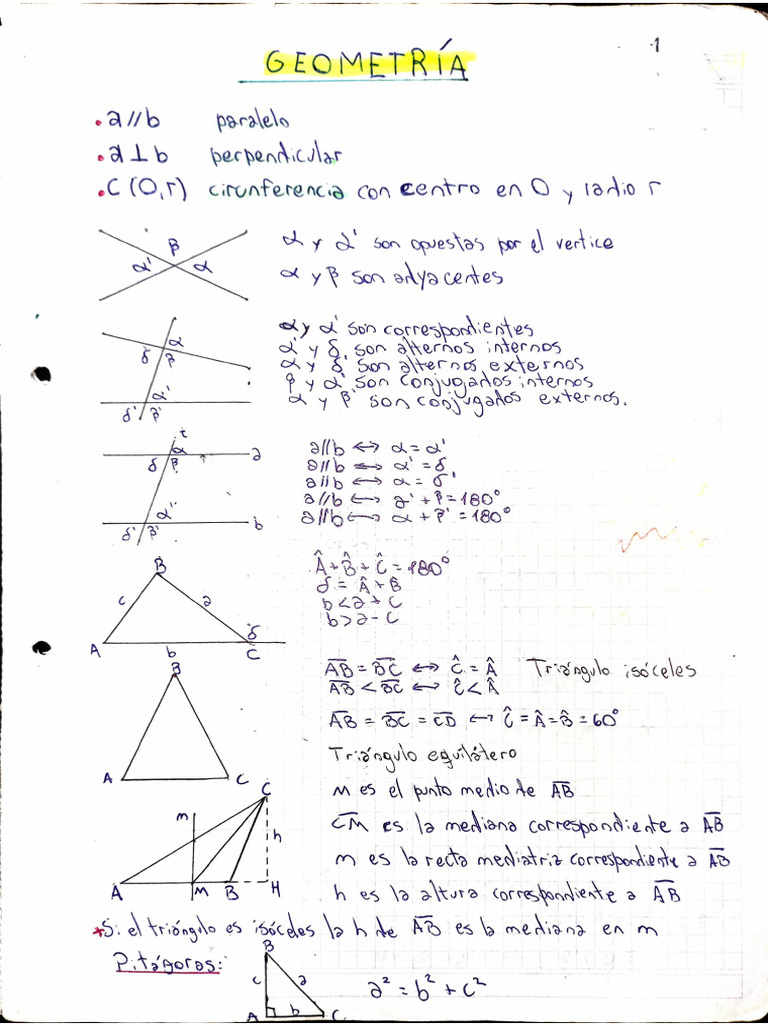 1
GEOMETRÍA
• a//b paralelo
• a⊥b perpendicular
• C (O,r) cirunferencia con centro en O y radio r
β
α' α
α y α' son opuestas por el vertice
α y β son adyacentes
α
δ β
α'
δ' β'
α y α' son correspondientes
α' y δ son alternos internos
α y δ' son alternos externos
β y α' son conjugados internos
α y β' son conjugados externos.
t
α
δ β a
α'
δ' β' b
a//b ↔ α = α'
a//b ↔ α' = δ
a//b ↔ α = δ'
a//b ↔ α' + β = 180°
a//b ↔ α + β' = 180°
B
c a
δ
A b C
Â + B̂ + Ĉ = 180°
δ = Â + B̂
b < a + c
b > a - c
B
A C
AB = BC ↔ Ĉ = Â Triángulo isóceles
AB < BC ↔ Ĉ < Â
AB = BC = CD ↔ Ĉ = Â = B̂ = 60°
Triángulo equilátero
C
m
h
A M B H
M es el punto medio de AB
CM es la mediana correspondiente a AB
m es la recta mediatriz correspondiente a AB
h es la altura correspondiente a AB
* Si el triángulo es isóceles la h de AB es la mediana en m
Pitágoras:
B
c a
A b C
a² = b² + c²